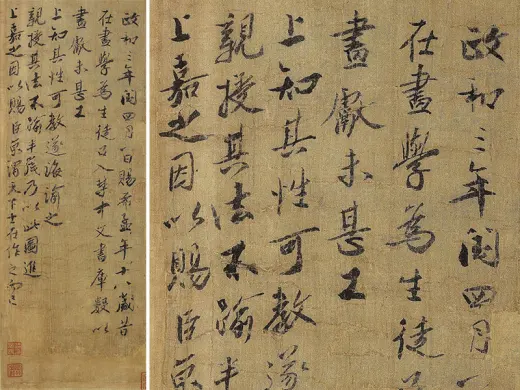 政和三年閏四月一日賜希孟年十八歲昔
在畫學為生徒召入禁中文書庫數以
畫獻未甚工
上知其性可教遂誨諭之
親授其法不踰半歲乃以此圖進
上嘉之因以賜臣京謂天下士在作之而已
政和三年閏四月
在畫學為生徒
畫獻未甚工
上知其性可教遂
親授其法不踰半
上嘉之因以賜臣京